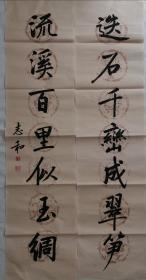 迭石千峦成翠笋
流溪百里似玉绸
志和